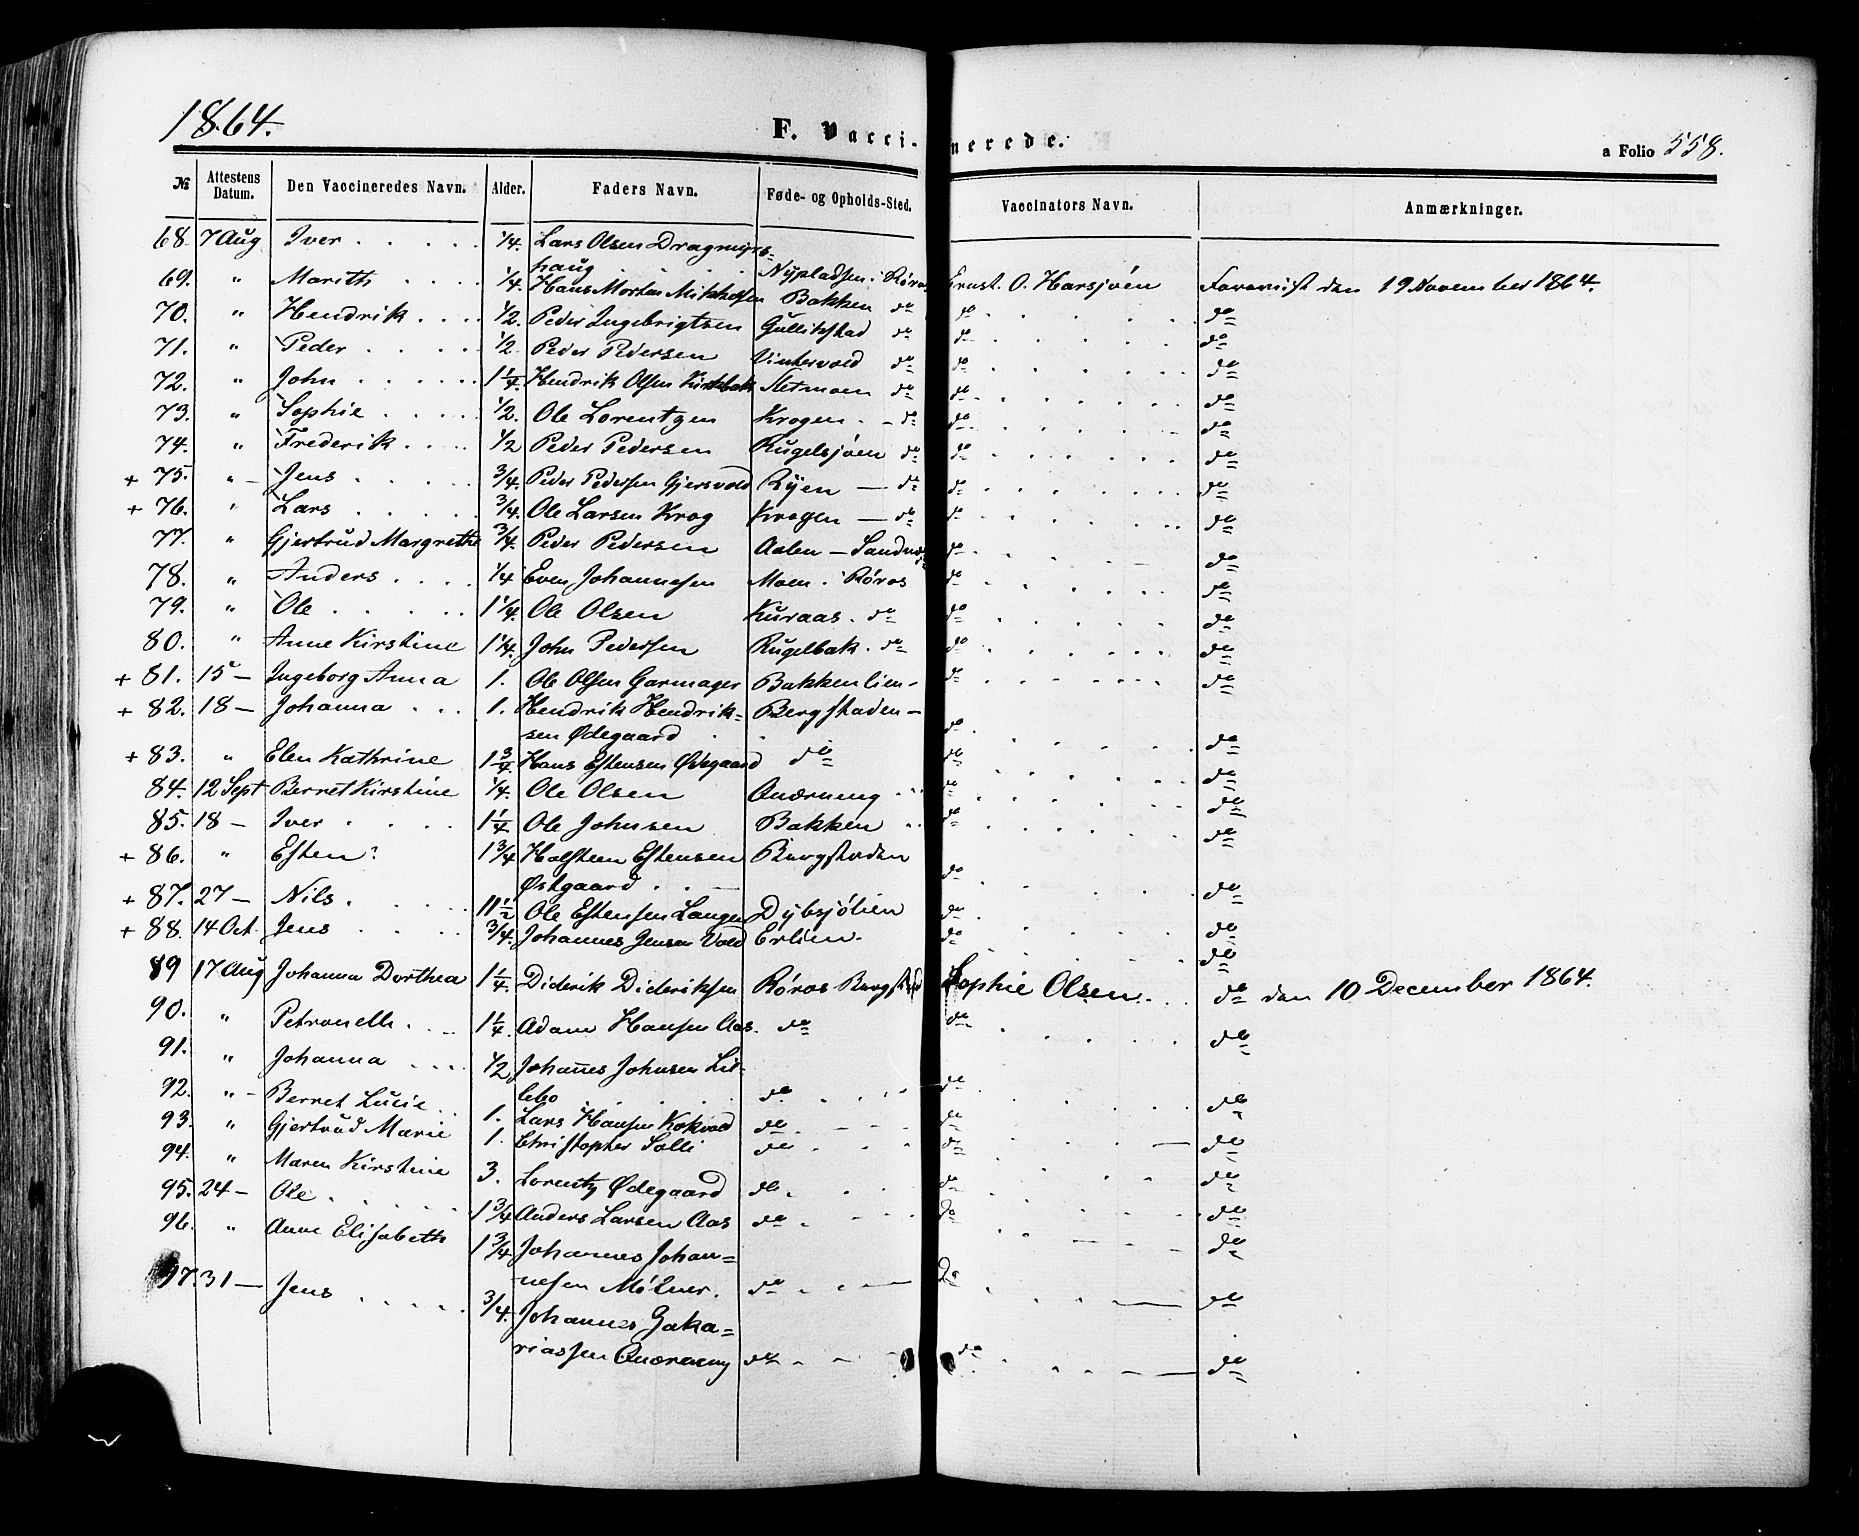 1864.
F. Vaccinerede.
a Folio 558.
№ Attestens Datum. Den Vaccineredes Navn. Alder. Faders Navn. Føde- og Opholds-Sted. Vaccinators Navn. Anmærkninger.
68. 7 Aug Iver . . . . . 1/4. Lars Olsen Dragmyrs=
haug . . . . Nypladsen. Røros Ernst O. Harsjøen Foreviist den 19 November 1864.
69. " Marith . . . . 1/4. Hans Morten Mikkelsen Bakken do do do
70. " Hendrik . . . . 1/2. Peder Ingebrigtsen Gullikstad do do do
71. " Peder . . . . 1/2. Peder Pedersen Vintervold do do do
72. " John . . . . . 1 1/4 Hendrik Olsen Kirkbak Sletmoen do do do
73. " Sophie . . . . 1/2. Ole Lorentzen Krogen. - do do do
74. " Frederik . . . . 1/2 Peder Pedersen Rugelsjøen do do do
+ 75. " - Jens . . . . . 3/4. Peder Pedersen Gjersvold Ryen — do do do
+ 76. " Lars . . . . . 3/4. Ole Larsen Krog Krogen — do do do
77. " Gjertrud Margrethe 3/4. Peder Pedersen Aalen — do do
78. " Anders . . . . 1/4 Even Johannesen Moen. Røros do do
79. " Ole . . . . . 1 1/4. Ole Olsen Kuraas. do do do
80. " Anne Kirstine 1 1/4. John Pedersen Rugelbak. do do do
+ 81. 15 — Ingeborg Anna 1. Ole Olsen Garmager Bakkenlien - do do
+ 82. 18 — Johanna . . . 1. Hendrik Hendrik=
sen Ødegaard . . Bergstaden — do do
+ 83. " Elen Kathrine 1 3/4. Hans Estensen Ødegaard do do do
84. 12 Sept Berret Kirstine 1/4. Ole Olsen Qværneng . . do do
85. 18 — Iver . . . . 1 1/4 Ole Johnsen Bakken . . do do
+ 86. " Esten . 1 3/4 Holsten Estensen Bergstaden
Østgaard . . — do do
+ 87. 27 — Nils . . . . . 11 1/2 Ole Estensen Langen Dybsjølien do do
+ 88. 14 Oct. Jens . . . . 3/4. Johannes Jensen Vold Erlien. do do
89 17 Aug Johanna Dorthea 1 1/4. Diderik Dideriksen Røros Bergstad Sophie Olsen . . . do den 10 December 1864.
90. " Petronelle . . . 1 1/4. Adam Hansen Aas. do do do
91. " Johanna . . . 1/2 Johannes Johnsen Lil=
lebo . . . . do . . . do do
92. " - Berret Lucie . . 1. Lars Hansen Kokvold do . - - do do
93. " Gjertrud Marie 1. Christopher Solli do . . do do
94. " Maren Kirstine 3. Lorentz Ødegaard do . . . do do
95. 24 — Ole . . . . . 1 3/4 Anders Larsen Aas do . . - - do do
96. " Anne Elisabeth 1 3/4. Johannes Johan=
nesen Mølner. do . . - — do do
97. 31 — Jens . . . . . 3/4. Johannes Zaka=
riassen Qværneng do . - - do do